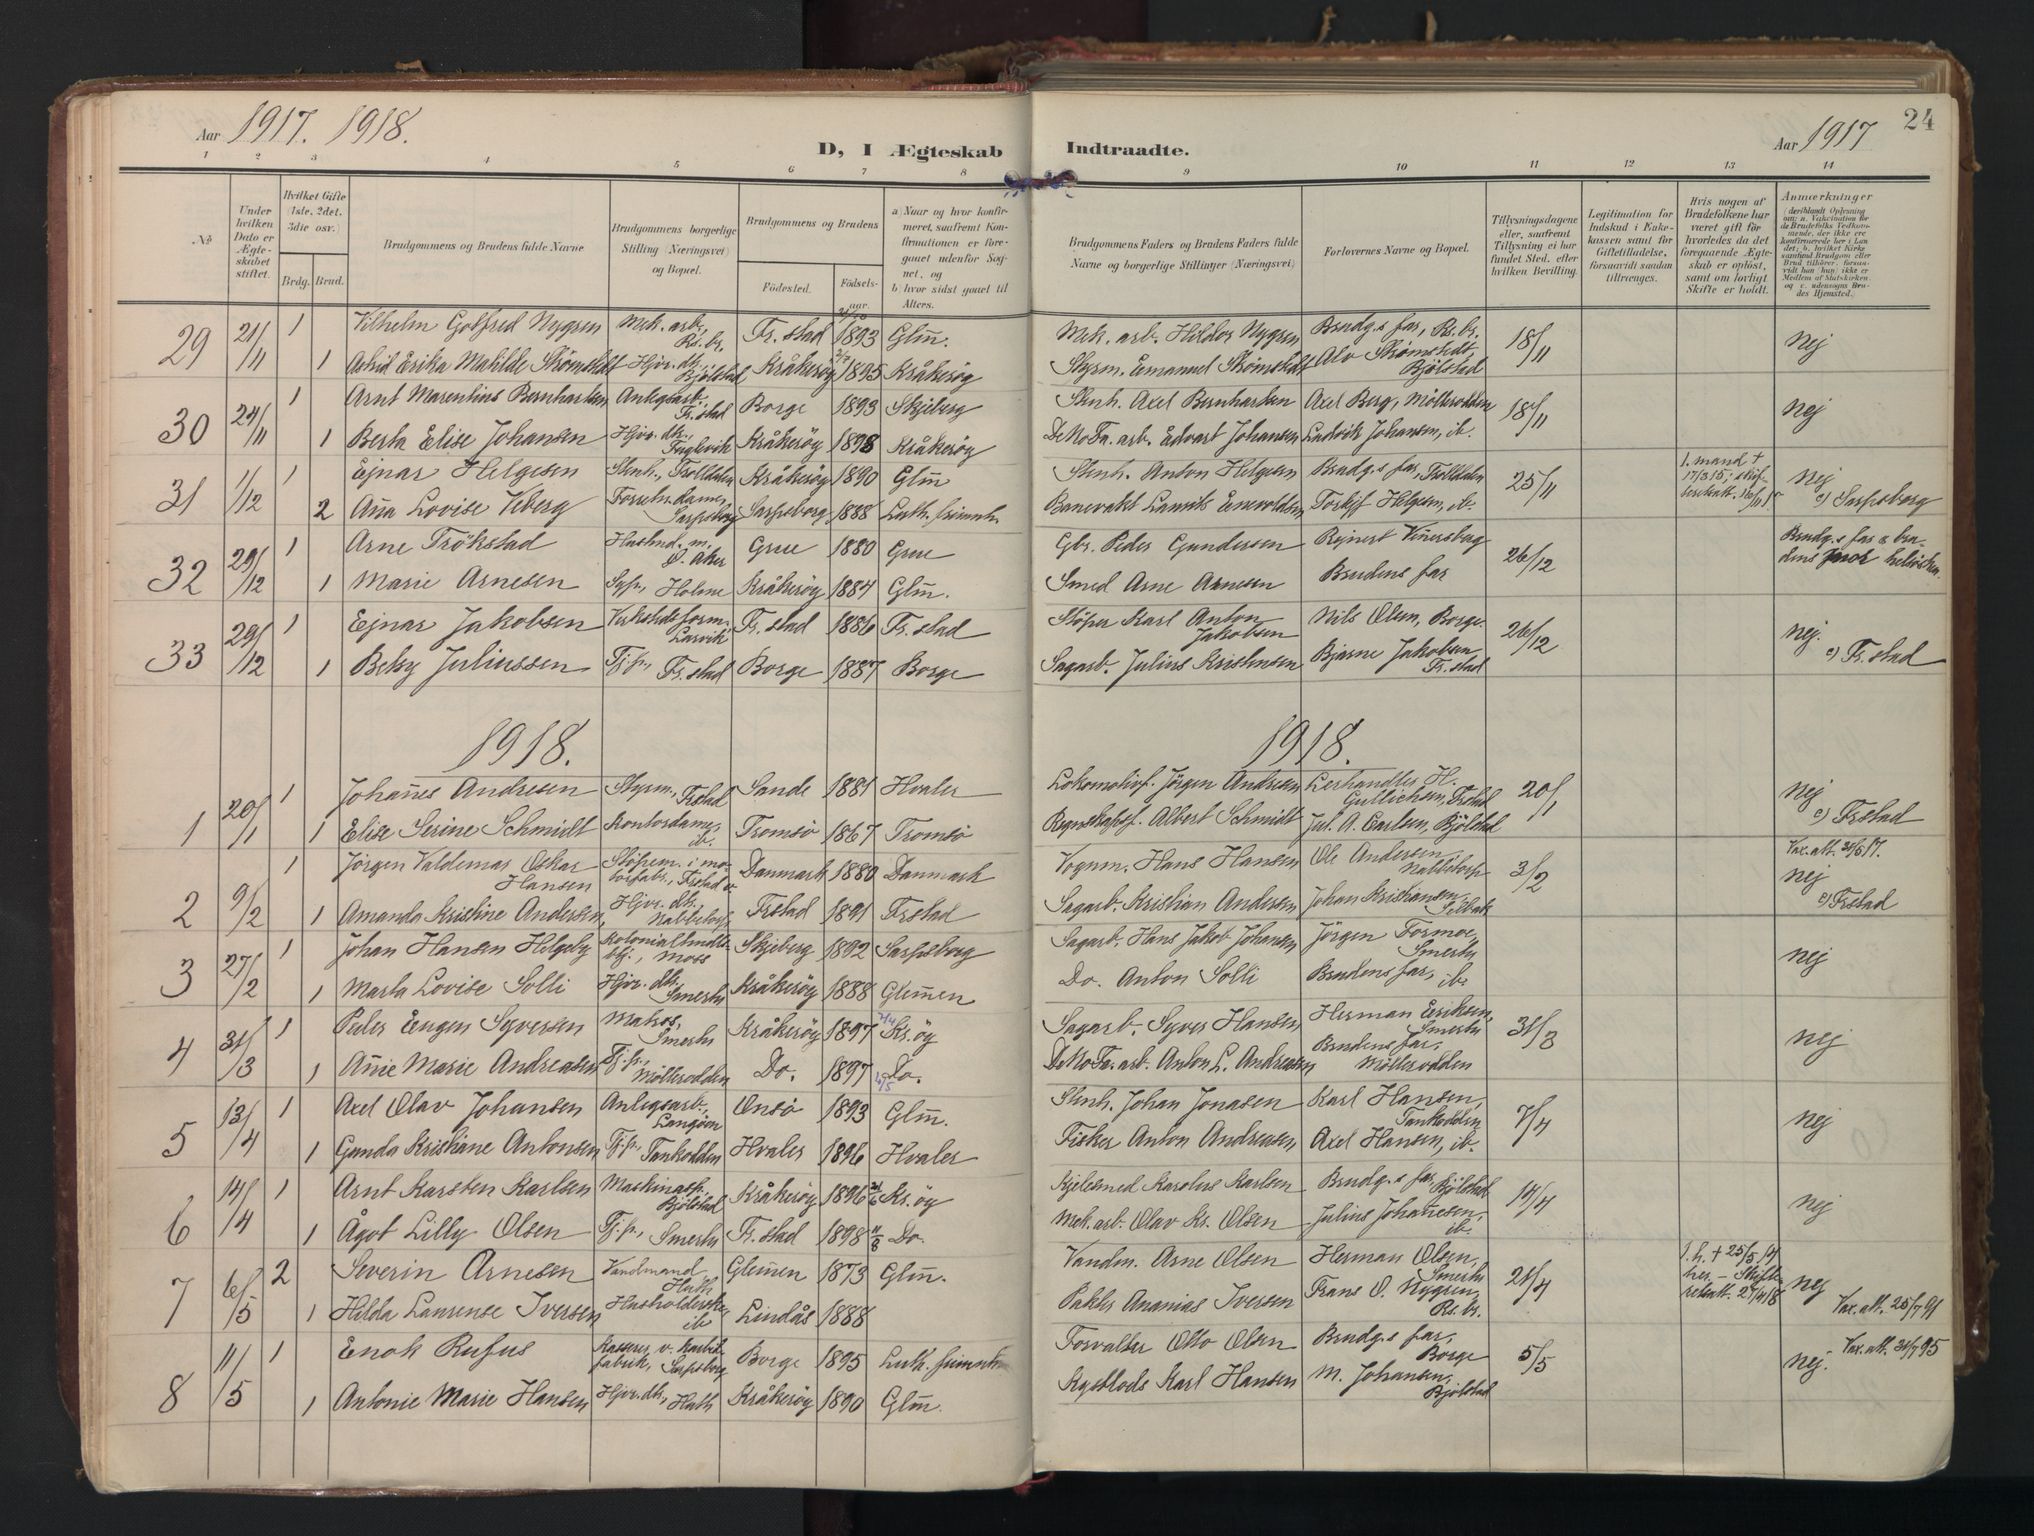 Aar 1917. 1918.
D, I Ægteskab Indtraadte.
Aar 1917
24
1 2 3 4 5 6 7 8 9 10 11 12 13 14
No
Under hvilken Dato er Ægteskabet stiftet.
Hvilket Gifte (1ste, 2det, 3die osv.)
Brdg. Brud.
Brudgommens og Brudens fulde Navne
Brudgommens borgerlige Stilling (Næringsvei) og Bopæl.
Brudgommens og Brudens
Fødested. Fødselsaar.
a) Naar og hvor konfirmeret, saafremt Konfirmationen er foregaaet udenfor Sognet, og
b) hvor sidst gaaet til Alters.
Brudgommens Faders og Brudens Faders fulde Navne og borgerlige Stillinger (Næringsvei.)
Forlovernes Navne og Bopæl.
Tillysningsdagene eller, saafremt Tillysning ei har fundet Sted, efter hvilken Bevilling.
Legitimation for Indskud i Enkekassen samt for Giftetilladelse, forsaavidt saadan tiltrænges.
Hvis nogen af Brudefolkene har været gift før hvorledes da det foregaaende Ægteskab er opløst, samt om lovligt Skifte er holdt.
Anmærkninger
29 21/11 1 Vilhelm Gotfred Nygren Mek. arb., Rs. br. Fr. stad 1893 Glm̄. Mek. arb. Hildor Nygren Brudg.s far, Rs. br. 18/11 nej
1 Astrid Erika Matilde Strömstedt Hjv. dtr., Bjölstad Kråkeröy 2/7 1895 Kråkeröy Styrm. Emanuel Strömstedt Alv Strömstedt, Bjölstad
30 24/11 1 Arnt Marentius Bernhartsen Anlegsarb., Fr. stad Borge 1893 Skjeberg Stenh. Axel Bernhartsen Axel Berg, Möllerodden 18/11 nej
1 Berta Elise Johansen Hjv. dtr., Fuglevik Kråkeröy 1898 Kråkeröy DeNoFa. arb. Edvart Johansen Ludvik Johansen, ib.
31 1/12 1 Ejnar Helgesen Stenh., Trolldalen Kråkeröy 1890 Glm̄ Stenh. Anton Helgesen Brudg.s far, Trolldalen 25/11 1. mand † 17/3 15; nej
2 Ana Lovise Viberg Sarpsborg Sarpsborg 1888 Luth. frimenh. Torleif Helgesen, ib. c) Sarpsborg
32 29/12 1 Arne Trökstad Ö. Aker Grue 1880 Grue Gbr. Peder Gundersen Rejnert Vinersberg 26/12 Brudg.s far
1 Marie Arnesen Syp., Holme Kråkeröy 1884 Glm̄. Smed Arne Arnesen Brudens far
33 29/12 1 Ejnar Jakobsen Verkstedsform., Larvik Fr. stad 1886 Fr. stad Stöper Karl Anton Jakobsen Nils Olsen, Borge. 26/12 nej.
1 Beksy Juliussen Tj. p., Fr. stad Borge 1887 Borge Sagarb. Julius Kristensen Bjarne Jakobsen Fr. stad c) Fr. stad
1918. 1918.
1 20/1 1 Johan̄es Andresen Styrm., Frstad Sande 1881 Hvaler Lokomotivf. Jörgen Andresen H. Gullichsen, Frstad 20/1 nej
1 Elise Serine Schmidt Kontordame, ib. Tromsö 1867 Tromsö Regnskabsf. Albert Schmidt Jul. A. Carlsen, Bjölstad c) Frstad
2 9/2 1 Jörgen Valdemar Oskar Hansen Stöpem. i motorfabr., Frstad Danmark 1880 Danmark Vognm. Hans Hansen Ole Andersen, Nabbetorp 3/2 Vax. att. nej
1 Amanda Kristine Andersen Hjv. dtr., Nabbetorp Frstad 1891 Frstad Sagarb. Kristian Andersen Johan Kristiansen, Selbak c) Frstad
3 27/2 1 Johan Hansen Helgeby Kolonialhandlerbtj., Moss Skjeberg 1892 Sarpsborg Sagarb. Hans Jakob Johansen Jörgen Formoe, Smertu nej
1 Marta Lovise Solli Hjv. dtr., Smertu Kråkeröy 1888 Glem̄en Do. Anton Solli Brudens far, ib.
4 31/3 1 Peder Eugen Syversen Matros, Smertu Kråkeröy 1897 Kr. öy Sagarb. Syver Hansen Herman Eriksen, Smertu 31/3 nej
1 An̄ie Marie Andreasen Tj. p., Möllerodden Do. 1897 Do. DeNoFa. arb. Anton L. Andreasen Brudens far, Möllerodden
5 13/4 1 Axel Olav Johansen Anlegsarb., Langöen Onsö 1893 Glm̄. Stenh. Johan Jonasen Karl Hansen, Tankodden 7/4 nej
1 Gunda Kristiane Antonsen Tj. p., Tankodden Hvaler 1896 Hvaler Fisker Anton Andreasen Axel Hansen, ib.
6 14/4 1 Arnt Karsten Karlsen Maskinask., Bjölstad Kråkeröy 1896 21/6 Kr. öy Kjelesmed Karolus Karlsen Brudg.s far, Bjölstad 14/4 nej
1 Ågot Lilly Olsen Tj. p., Smertu Fr. stad 1898 11/8 Do. Mek. arb. Olav Kr. Olsen Julius Johan̄esen, ib.
7 6/5 2 Severin Arnesen Vandmand Huth Glem̄en 1873 Glm̄. Vandm. Arne Olsen Herman Olsen, Smertu 21/4 nej
1 Hilda Laurense Iversen Husholderske, ib. Lindås 1888 Pakker Ananias Iversen Frans O. Nygren, Rs. br. Vax. att. 25/7 91
8 11/5 1 Enok Rufus Kasserer v. Karbitfabrik, Sarpsborg Borge 1895 Luth. frimenh. Forvalter Otto Olsen Brudg.s far, Borge 5/5 nej. Vax. att. 31/7 95
1 Antonie Marie Hansen Hjv. dtr., Huth Kråkeröy 1890 Glm̄. Kystlods Karl Hansen M. Johansen, Bjölstad